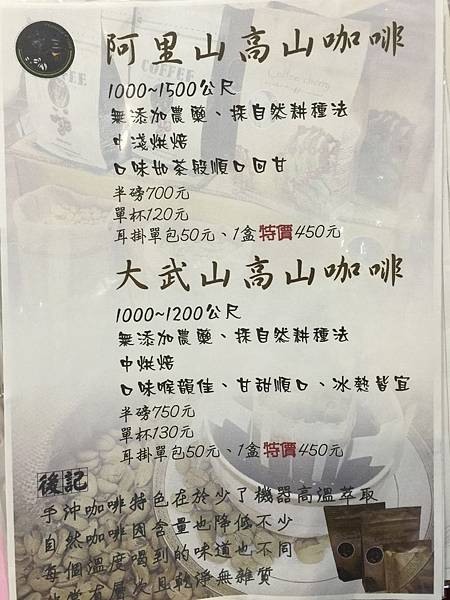 阿里山高山咖啡
1000~1500公尺
無添加農藥、採自然耕種法
中淺烘焙
口味如茶般順口回甘
半磅700元
單杯120元
耳掛單包50元、1盒特價450元
大武山高山咖啡
1000~1200公尺
無添加農藥、採自然耕種法
中烘焙
口味喉韻佳、甘甜順口、冰熱皆宜
半磅750元
單杯130元
耳掛單包50元、1盒特價450元
後記
手沖咖啡特色在於少了機器高溫萃取
自然咖啡因含量也降低不少
每個溫度喝到的味道也不同
非常有層次且乾淨無雜質
COFFEE
Coffee cherry